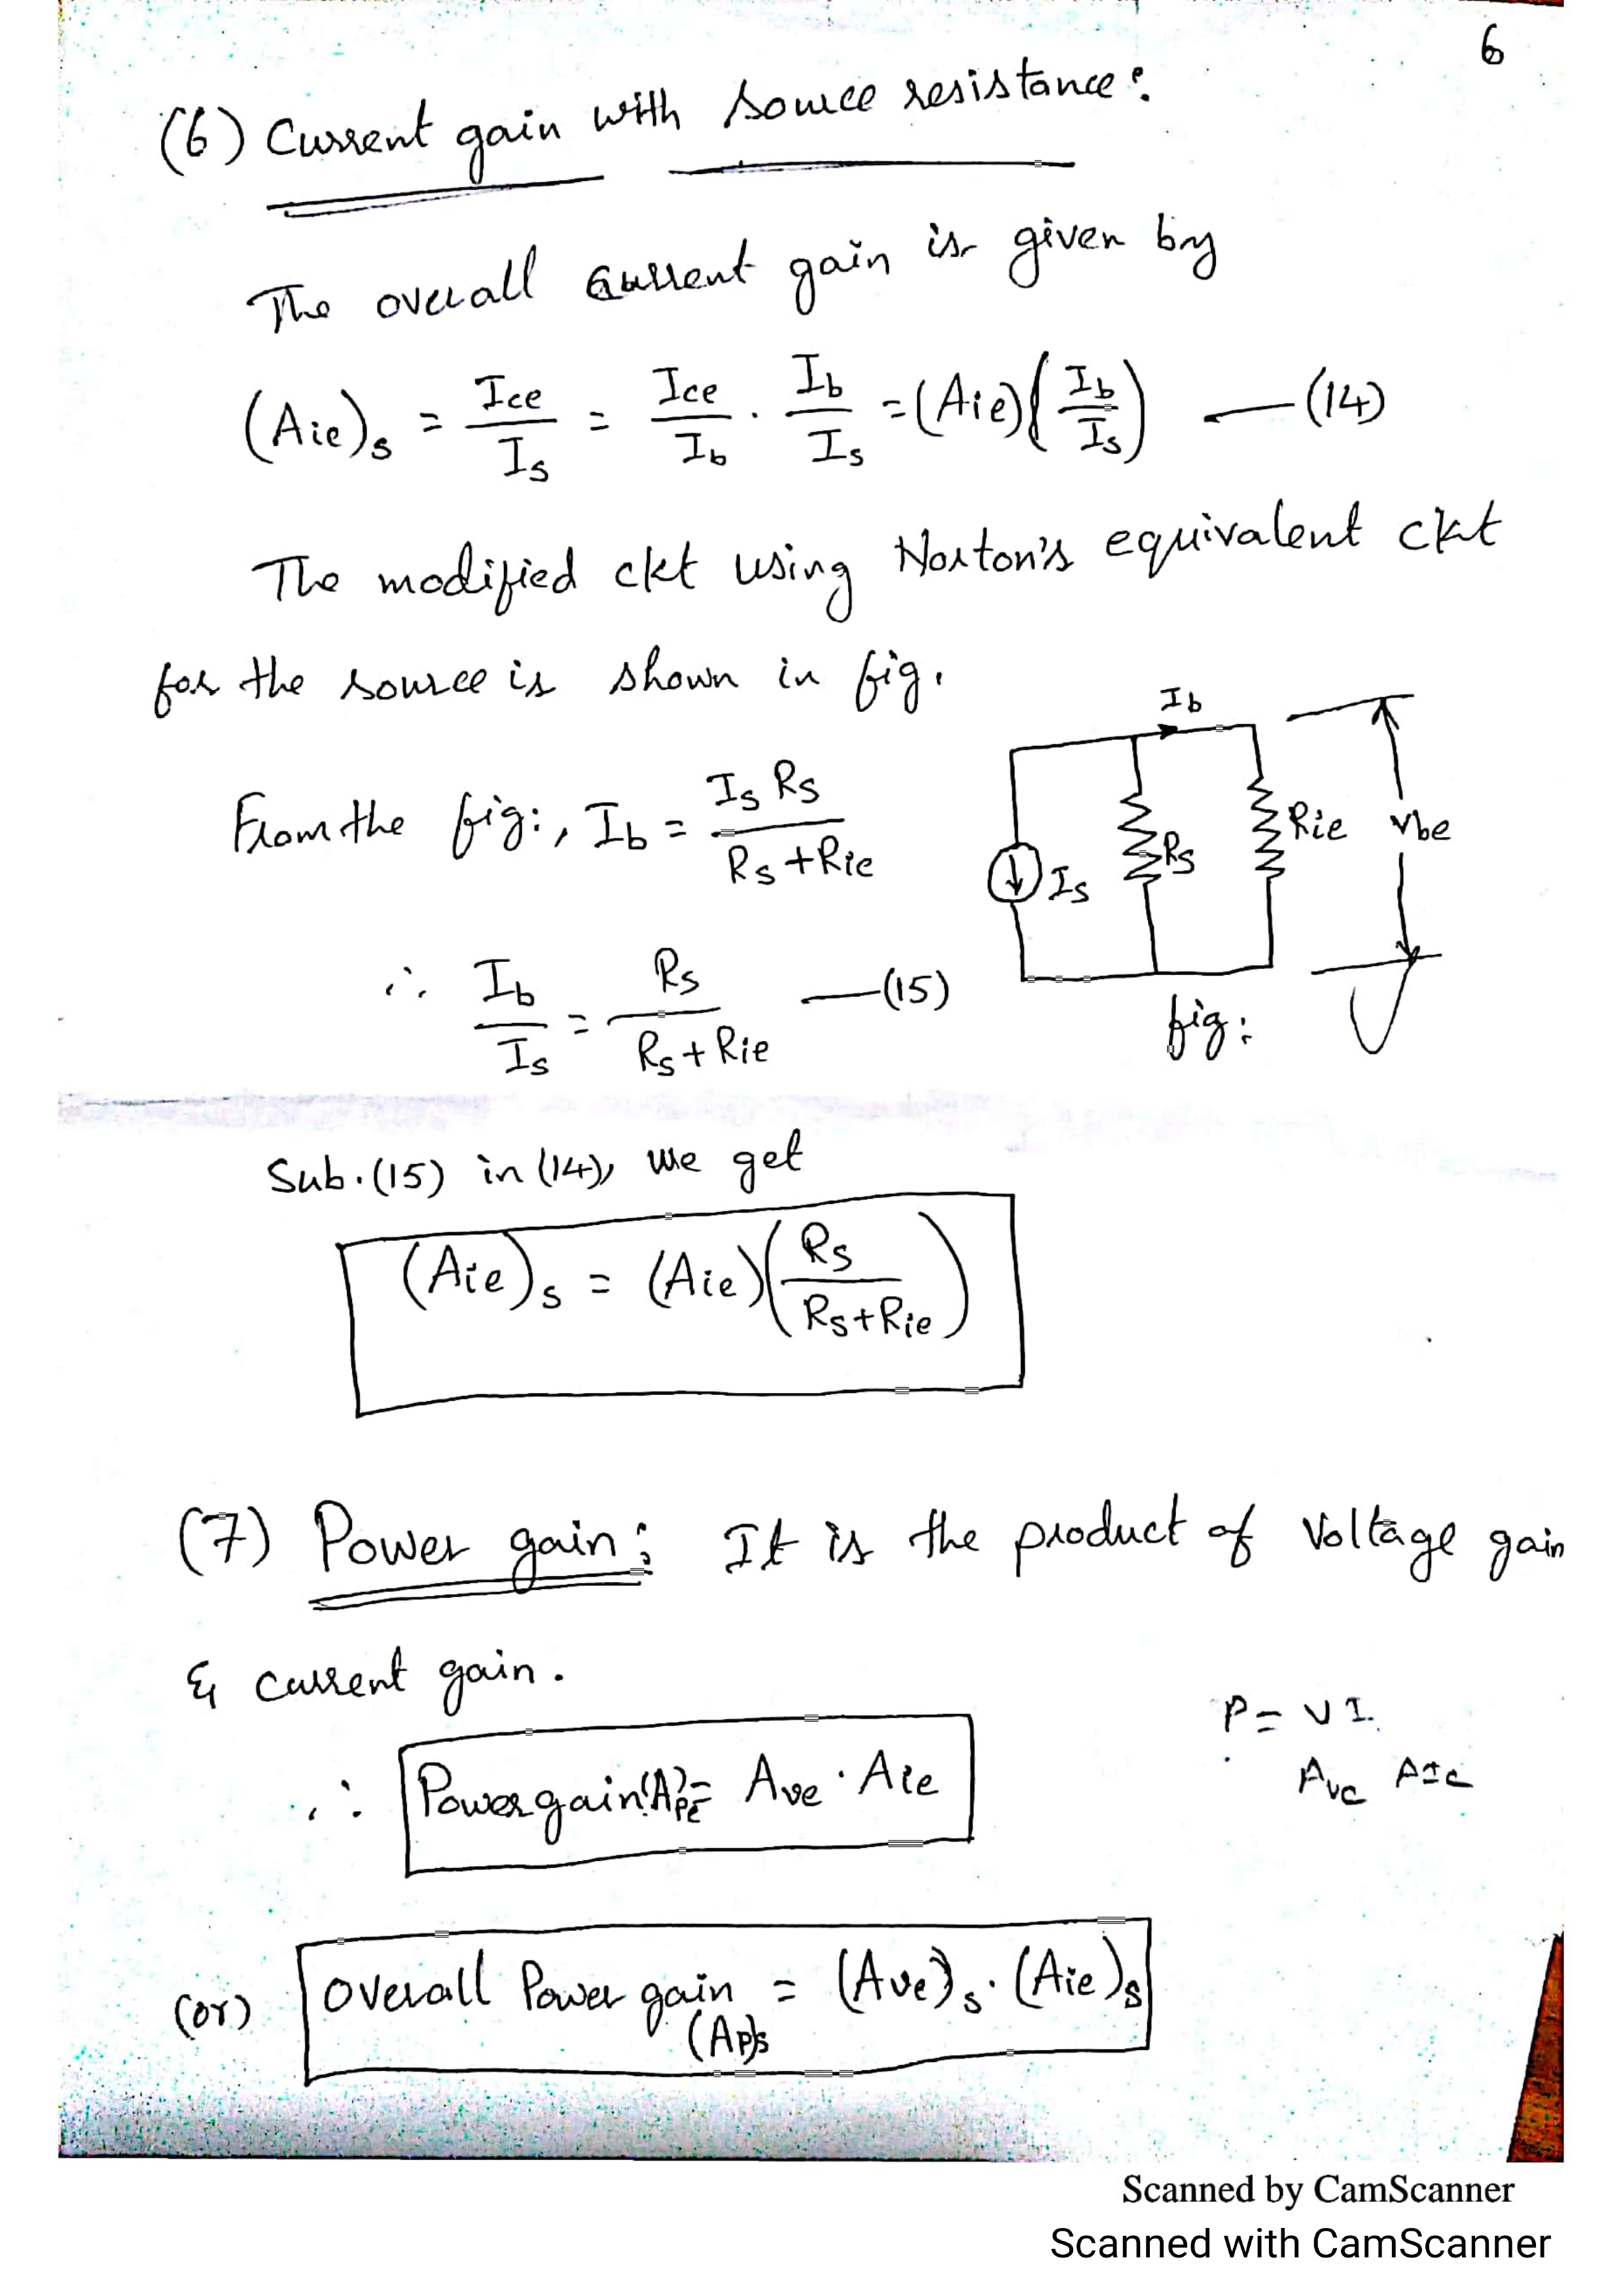 6
(6) Current gain with source resistance:
The overall current gain is given by
(Aie)s = Ice/Is = Ice/Ib . Ib/Is = (Aie)(Ib/Is) —(14)
The modified ckt using Norton's equivalent ckt
for the source is shown in fig.
Ib
From the fig:, Ib = Is Rs/Rs+Rie
Is Rs Rie Vbe
∴ Ib/Is = Rs/Rs+Rie —(15)
fig:
Sub.(15) in (14), we get
(Aie)s = (Aie)(Rs/Rs+Rie)
(7) Power gain: It is the product of Voltage gain
& current gain.
P = VI.
∴ Power gain (Ape) = Ave . Aie
Ave AIe
(or) Overall Power gain = (Ave)s . (Aie)s
(Ap)s
Scanned by CamScanner
Scanned with CamScanner